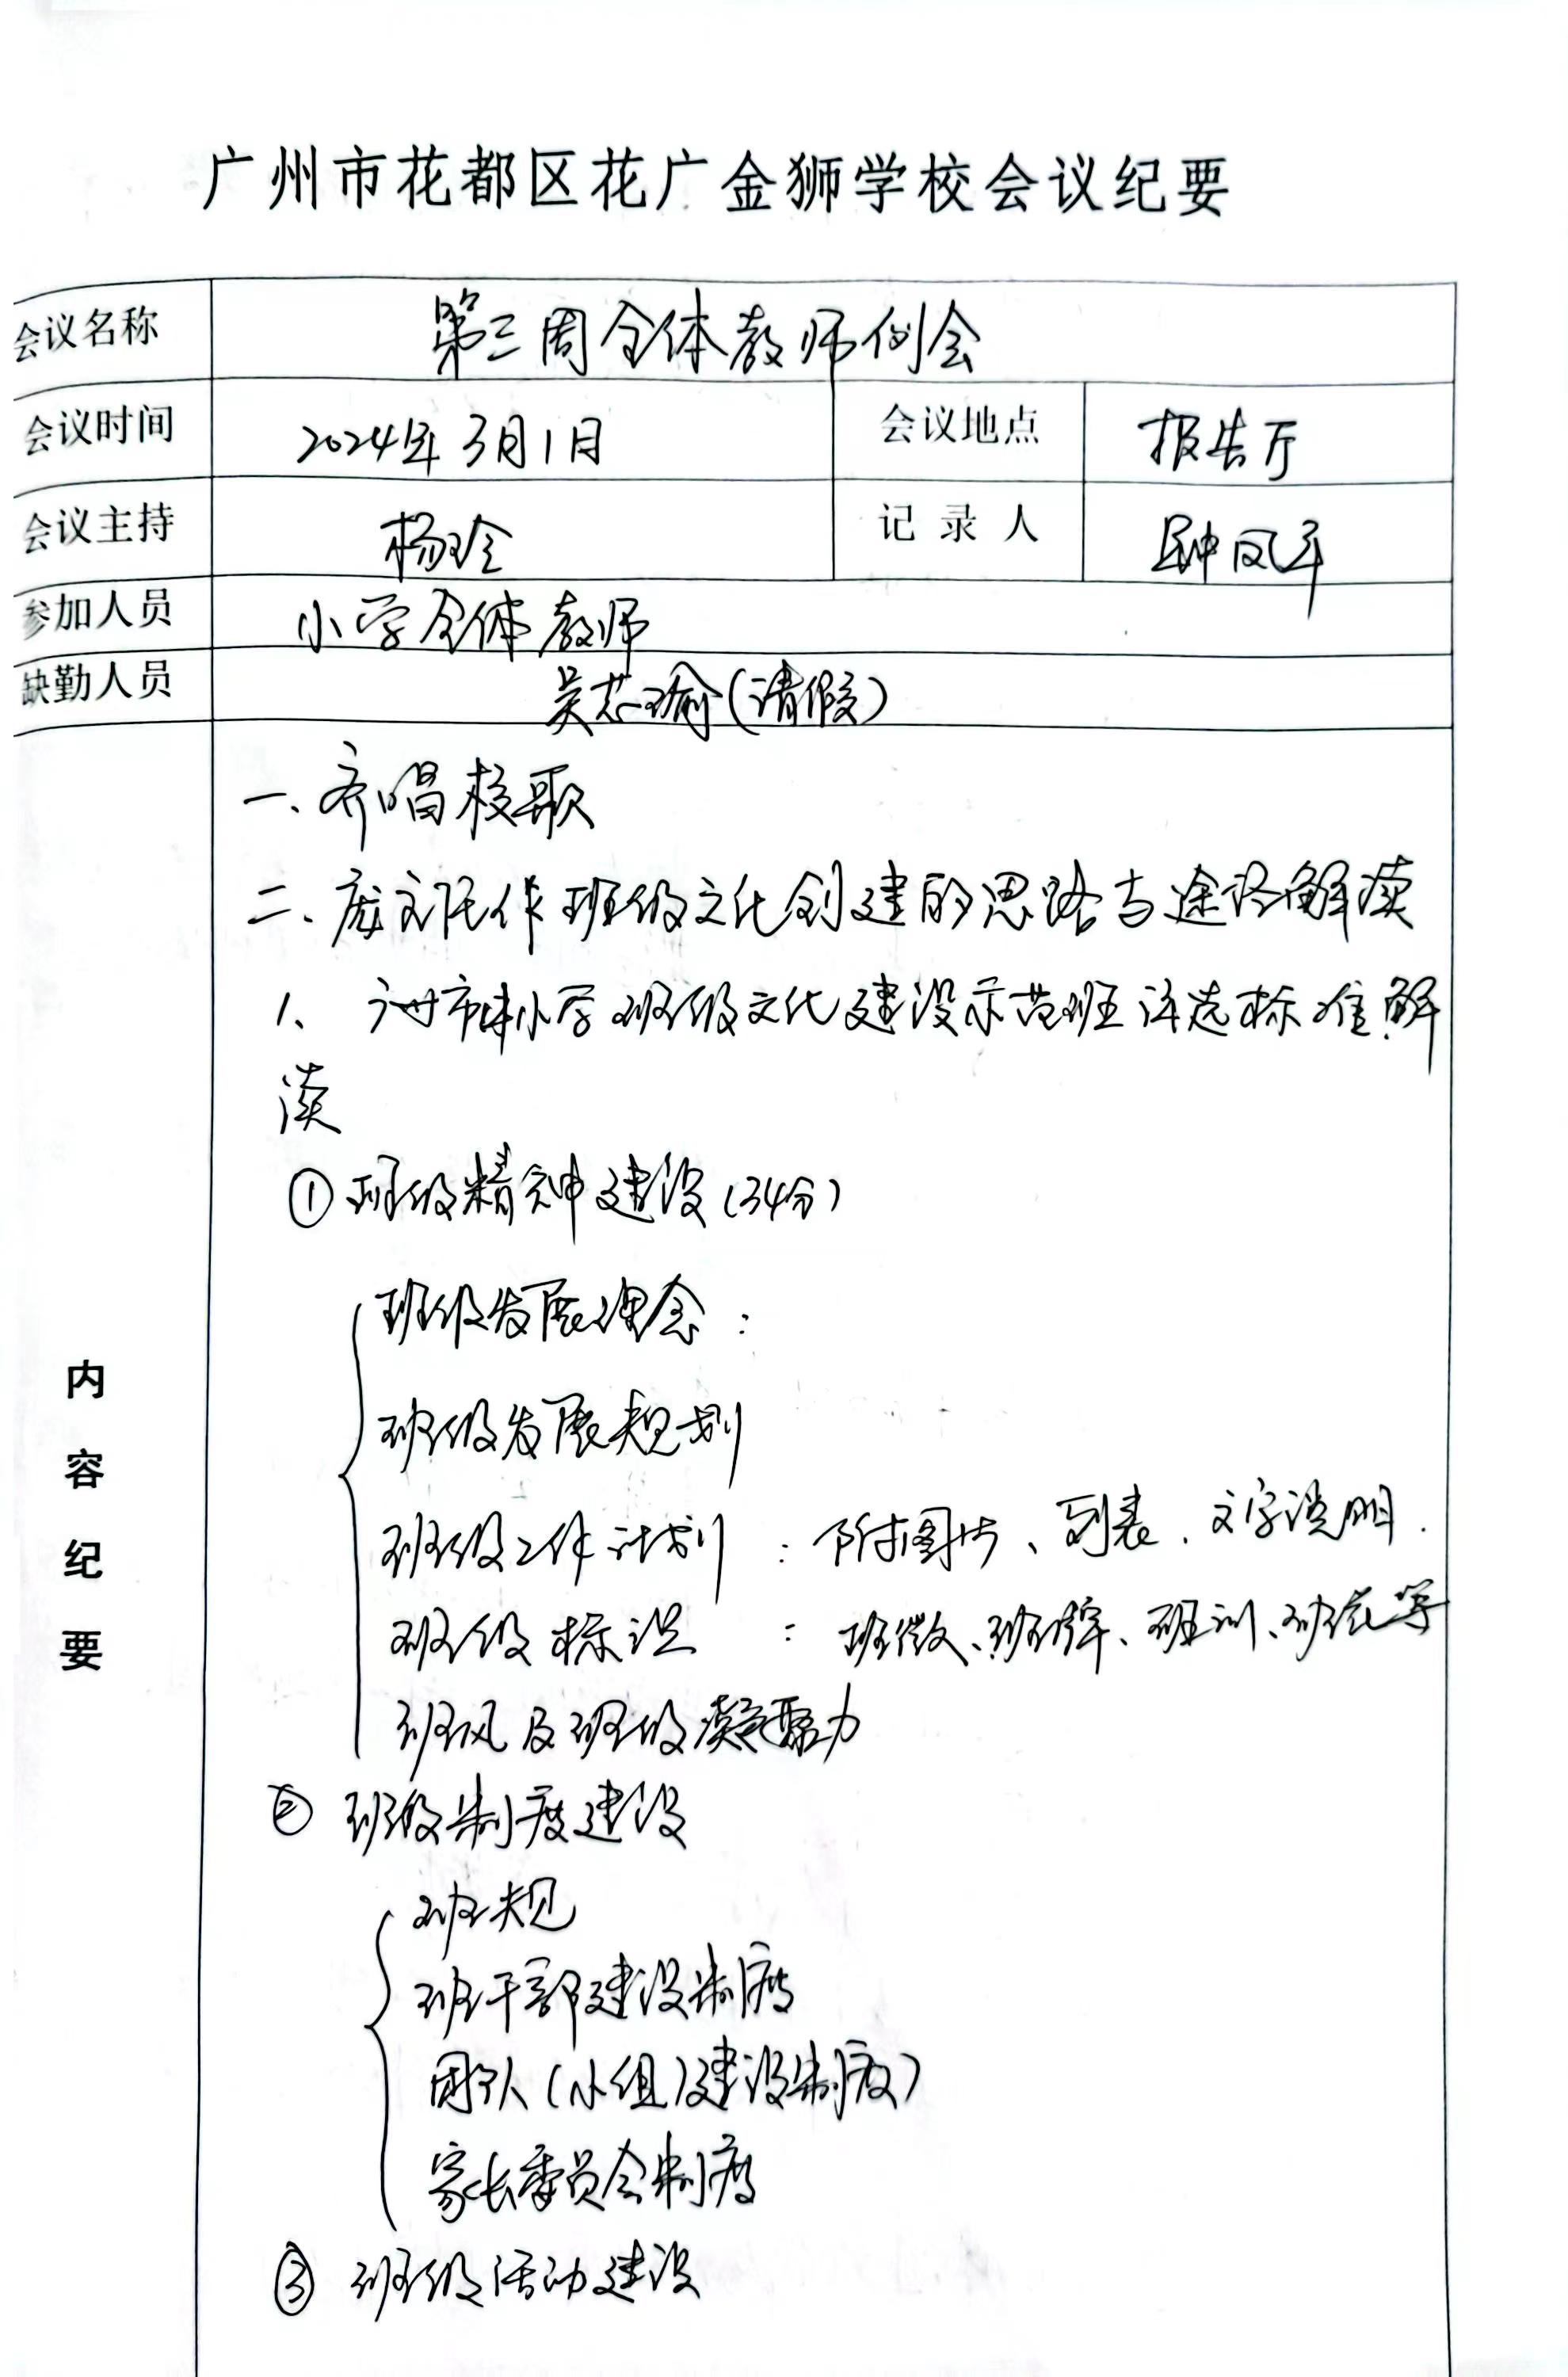 广州市花都区花广金狮学校会议纪要
会议名称 第三周全体教师例会
会议时间 2024年3月1日 会议地点 报告厅
会议主持 杨玲 记录人 钟凤平
参加人员 小学全体教师
缺勤人员 吴志瑜(请假)
内容纪要
一、齐唱校歌
二、庞主任作班级文化创建的思路与途径解读
1、广州市中小学班级文化建设示范班评选标准解
读
①班级精神建设(34分)
班级发展理念:
班级发展规划
班级工作计划:附图片、列表、文字说明.
班级标识:班徽、班牌、班训、班花等
班风及班级凝聚力
② 班级制度建设
班规
班干部建设制度
团队(小组)建设制度)
家长委员会制度
③ 班级活动建设